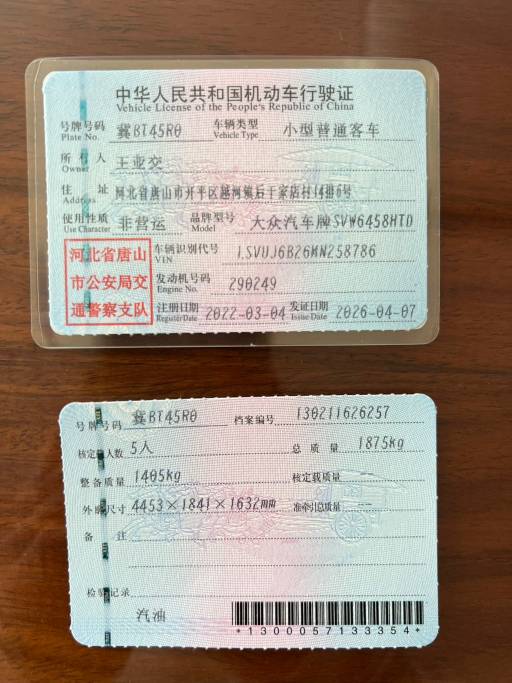 中华人民共和国机动车行驶证
Vehicle License of the People's Republic of China
号牌号码 Plate No. 冀BT45R0 车辆类型 Vehicle Type 小型普通客车
所有人 Owner 王亚交
住址 Address 河北省唐山市开平区越河镇后于家店村14排6号
使用性质 Use Character 非营运 品牌型号 Model 大众汽车牌SVW6458HTD
河北省唐山
市公安局交
通警察支队
车辆识别代号 VIN LSVUJ6B26MN258786
发动机号码 Engine No. 290249
注册日期 Register Date 2022-03-04 发证日期 Issue Date 2026-04-07
号牌号码 冀BT45R0 档案编号 130211626257
核定载人数 5人 总质量 1875kg
整备质量 1405kg 核定载质量
外廓尺寸 4453×1841×1632mm 准牵引总质量 --
备注
检验记录
汽油
*1300057133354*